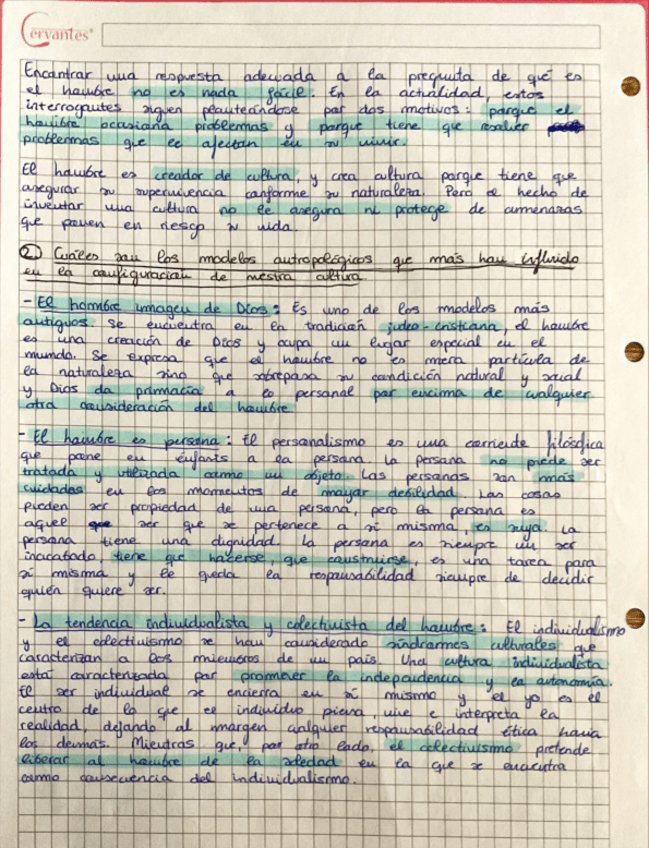 Cervantes®
Encontrar una respuesta adecuada a la pregunta de qué es
el hombre no es nada fácil. En la actualidad, estos
interrogantes siguen planteándose por dos motivos: porque el
hombre ocasiona problemas y porque tiene que resolver
problemas que le afectan en su vivir.
El hombre es creador de cultura, y crea cultura porque tiene que
asegurar su supervivencia conforme su naturaleza. Pero el hecho de
inventar una cultura no le asegura ni protege de amenazas
que ponen en riesgo su vida.
② Cuáles son los modelos antropológicos que más han influido
en la configuración de nuestra cultura
- El hombre imagen de Dios: Es uno de los modelos más
antiguos. Se encuentra en la tradición judeo-cristiana, el hombre
es una creación de Dios y ocupa un lugar especial en el
mundo. Se expresa que el hombre no es mera partícula de
la naturaleza sino que sobrepasa su condición natural y social
y Dios da primacía a lo personal por encima de cualquier
otra consideración del hombre.
- El hombre es persona: El personalismo es una corriente filosófica
que pone en énfasis a la persona. La persona no puede ser
tratada y utilizada como un objeto. Las personas son más
cuidadas en los momentos de mayor debilidad. Las cosas
pueden ser propiedad de una persona, pero la persona es
aquel ser que se pertenece a sí misma, es suya. La
persona tiene una dignidad. La persona es siempre un ser
inacabado, tiene que hacerse que construirse, es una tarea para
sí misma y le queda la responsabilidad siempre de decidir
quién quiere ser.
- La tendencia individualista y colectivista del hombre: El individualismo
y el colectivismo se han considerado síndromes culturales que
caracterizan a los miembros de un país. Una cultura individualista
está caracterizada por promover la independencia y la autonomía.
El ser individual se encierra en sí mismo y el yo es el
centro de lo que el individuo piensa, vive e interpreta la
realidad, dejando al margen cualquier responsabilidad ética hacia
los demás. Mientras que, por otro lado, el colectivismo pretende
liberar al hombre de la soledad en la que se encuentra
como consecuencia del individualismo.